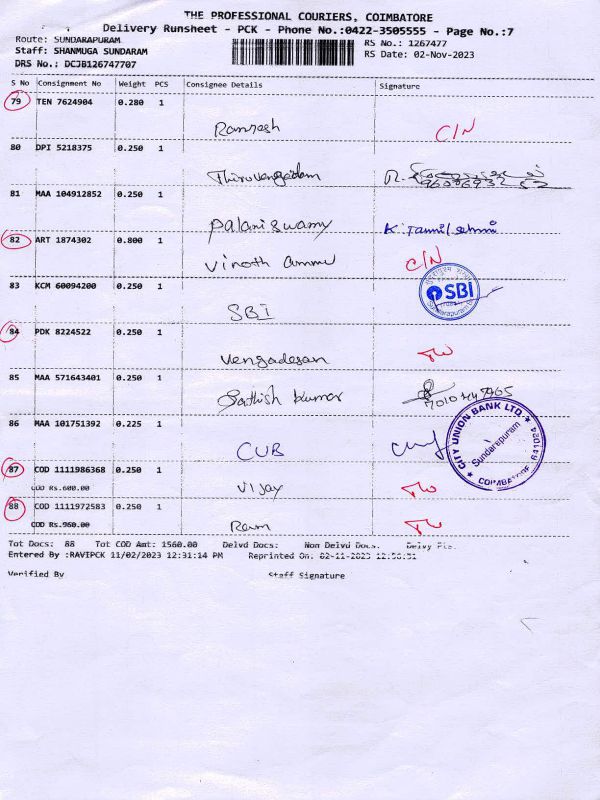 THE PROFESSIONAL COURIERS, COIMBATORE
Delivery Runsheet - PCK - Phone No.:0422-3505555 - Page No.:7
Route: SUNDARAPURAM
RS No.: 1267477
Staff: SHANMUGA SUNDARAM
RS Date: 02-Nov-2023
DRS No.: DCJB126747707
S No Consignment No Weight PCS Consignee Details Signature
79 TEN 7624904 0.280 1
Ramesh C/N
80 DPI 5218375 0.250 1
Thiruvengadam
81 MAA 104912852 0.250 1
Palaniswamy K. Tamil selvam
82 ART 1874302 0.800 1
Vinoth C/N
83 KCM 60094200 0.250 1
SBI SBI
84 PDK 8224522 0.250 1
Vengadesan
85 MAA 571643401 0.250 1
Sathish Kumar
86 MAA 101751392 0.225 1
CUB CITY UNION BANK LTD. Sundarapuram COIMBATORE 641024
87 COD 1111986368 0.250 1
COD Rs.600.00 Vijay
88 COD 1111972583 0.250 1
COD Rs.960.00 Ram
Tot Docs: 88 Tot COD Amt: 1560.00 Delvd Docs: Non Delvd Docs. Delvy Pts.
Entered By :RAVIPCK 11/02/2023 12:31:14 PM Reprinted On: 02-11-2023
Verified By Staff Signature